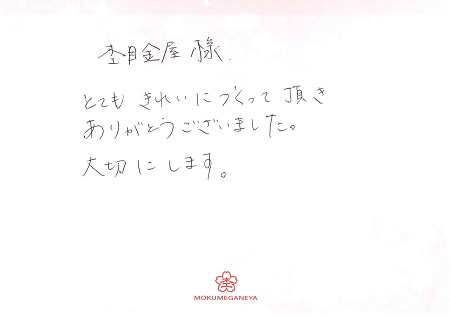 杢目金屋 様
とても きれいに つくって 頂き
ありがとうございました。
大切に します。
杢
MOKUMEGANEYA